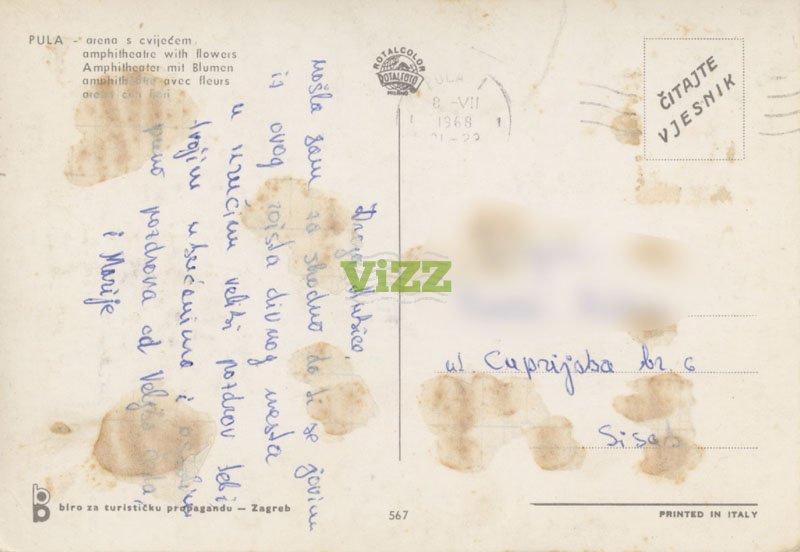 PULA - arena s cvijećem
amphitheatre with flowers
Amphitheater mit Blumen
amphithéâtre avec fleurs
arena con fiori
ROTALCOLOR
ROTALFOTO
MILANO
PULA
8 -VII
1968
21-22
ČITAJTE
VJESNIK
našla sam za shodno da ti se javim
iz ovog zaista divnog mesta
u uručim veliki pozdrav tebi
tvojim ukućanima i
puno pozdrava od Veljka
i Marije
ViZZ
ul. Cuprijska br. 6
Sisak
biro za turističku propagandu — Zagreb
567
PRINTED IN ITALY